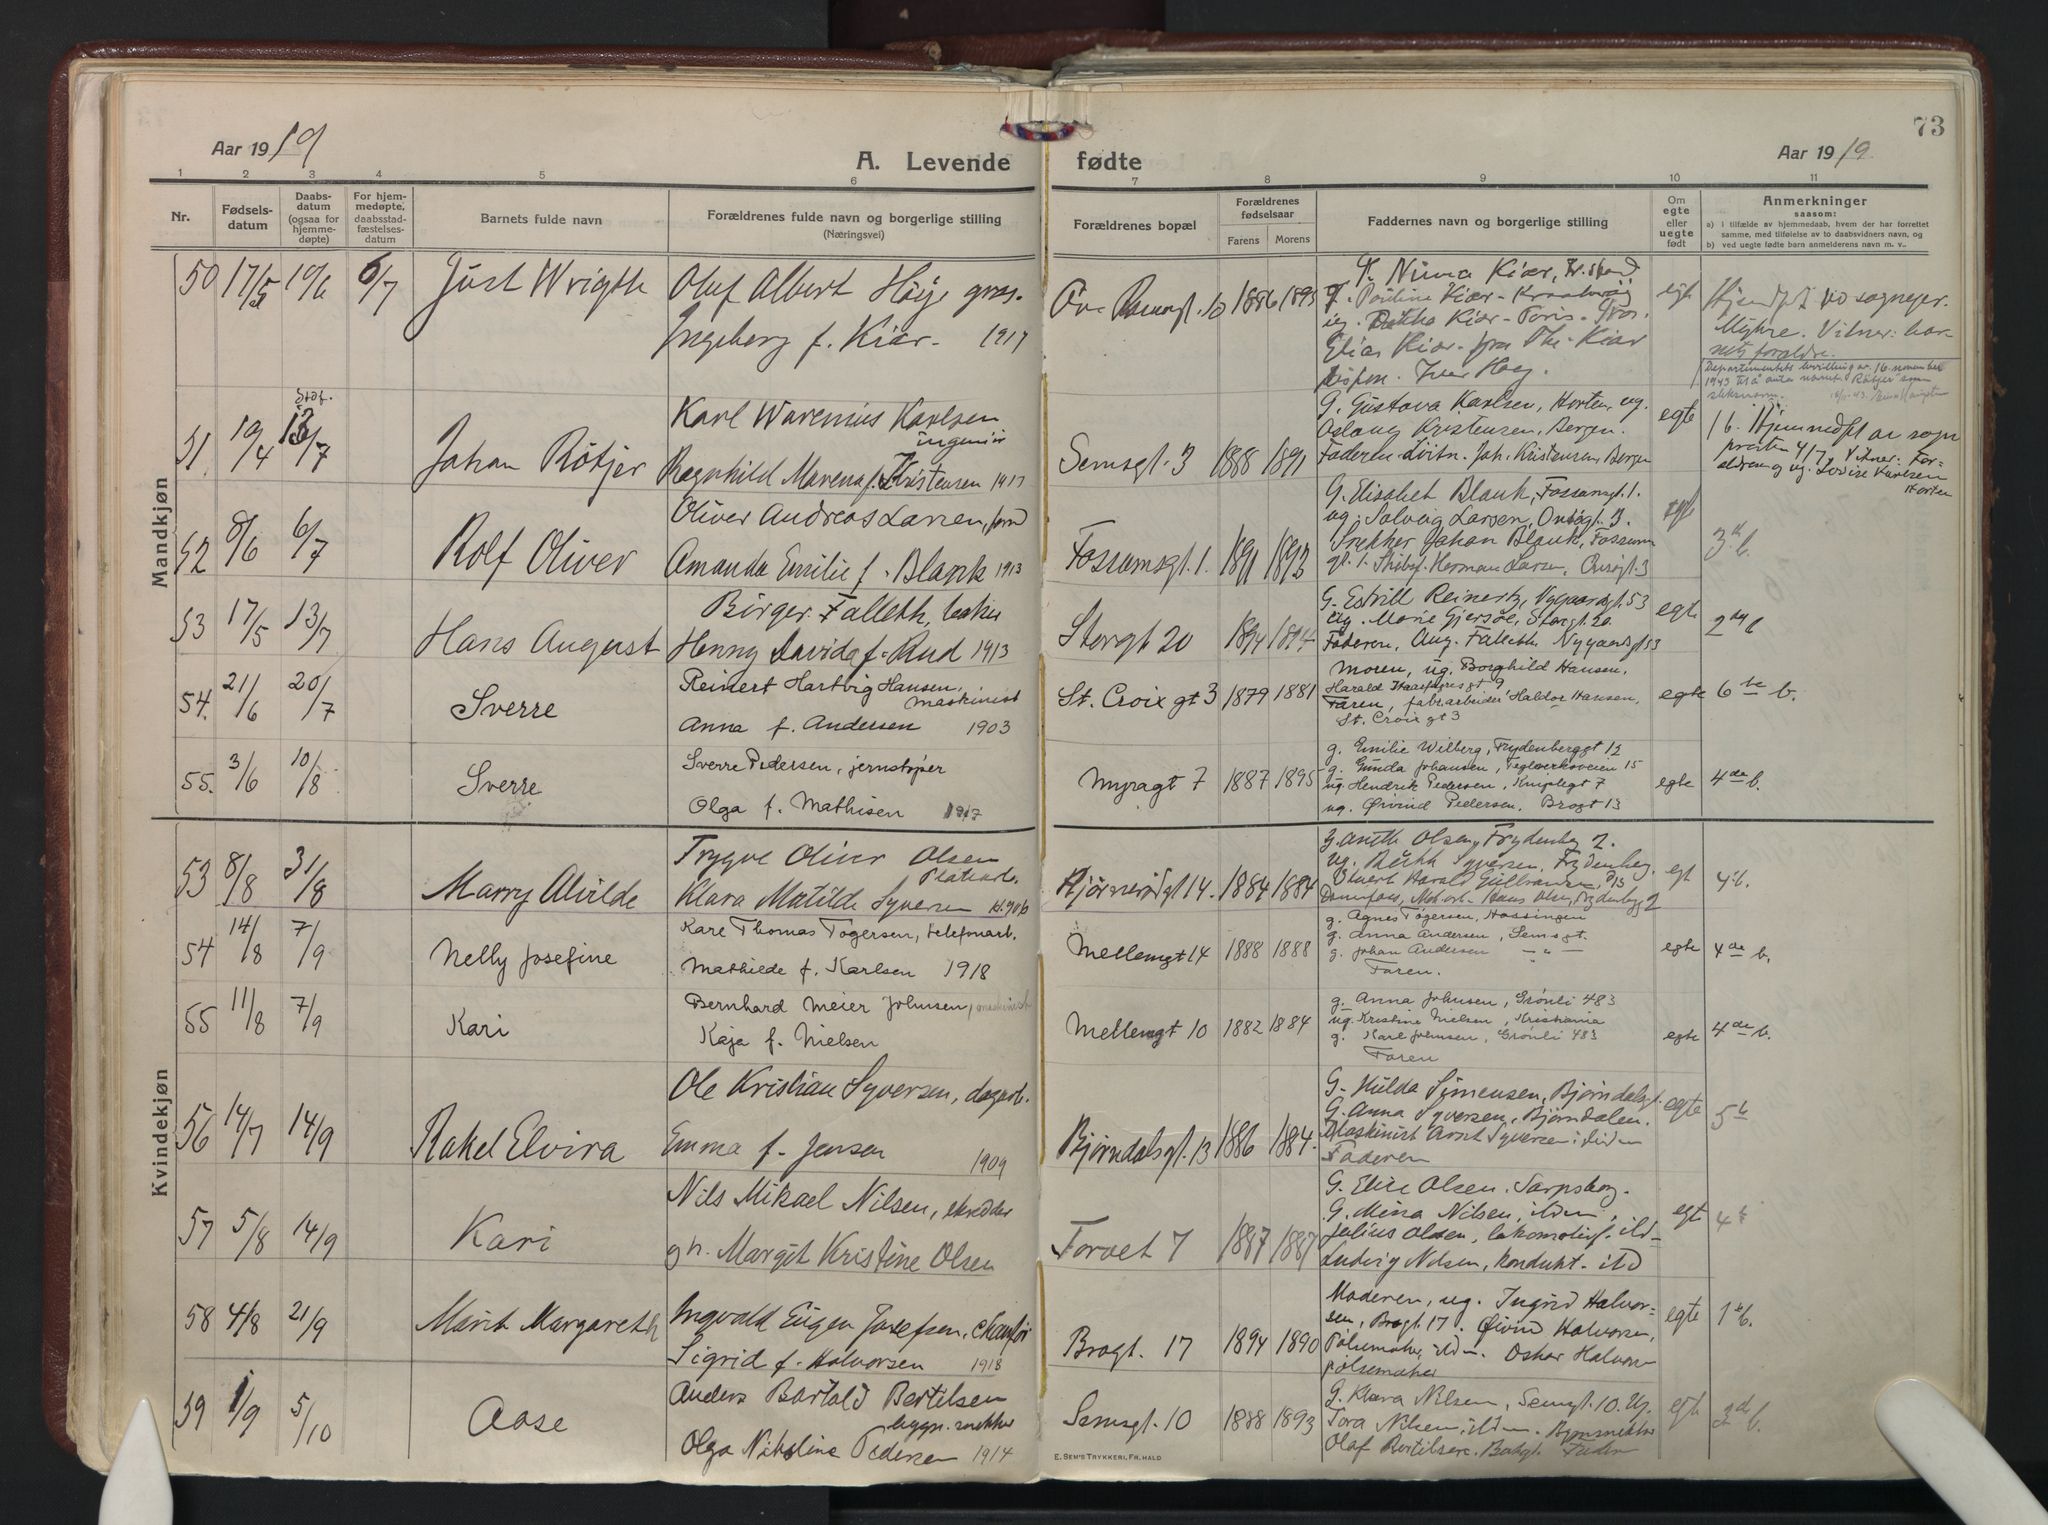 73
Aar 1919
A. Levende fødte
Aar 1919
1 2 3 4 5 6 7 8 9 10 11
Nr.
Fødsels-
datum
Daabs-
datum
(ogsaa for
hjemme-
døpte)
For hjem-
medøpte,
daabsstad-
fæstelses-
datum
Barnets fulde navn
Forældrenes fulde navn og borgerlige stilling
(Næringsvei)
Forældrenes bopæl
Forældrenes
fødselsaar
Farens Morens
Faddernes navn og borgerlige stilling
Om
egte
eller
uegte
født
Anmerkninger
saasom:
a) i tilfælde av hjemmedaab, hvem der har forrettet
samme, med tilføielse av to daabsvidners navn, og
b) ved uegte fødte barn anmelderens navn m. v.
Mandkjøn
50 17/5 19/6 6/7 Just Wrigth
Oluf Albert Høije
Ingeborg f. Kiær 1917
1886 1893
Elias Kiær
egte
Myhre. Vitner: bar-
nets forældre.
Departementets bevilling av 16. november
1943 til å anta navnet "Rötjer" som
51 19/4 13/7 Johan Rötjer
Karl Waremius Karlsen
ingeniør
Ragnhild Marena f. Kristensen 1917
Semsgt. 3 1888 1891
G. Gustava Karlsen, Horten, ug.
Aslaug Kristensen, Bergen.
Faderen. Løitn. Joh. Kristensen, Bergen
egte
16. Hjemmedøpt av sogne
presten 4/7. Vitner: For-
ældrene og ug. Lovise Karlsen
Horten
52 8/6 6/7 Rolf Oliver
Oliver Andreas Larsen, form
Amanda Emilie f. Blank 1913
Fossumsgt. 1. 1891 1893
G. Elisabet Blank, Fossumsgt. 1.
ug. Solveig Larsen, Onsøgt. 3.
Snekker Johan Blank, Fossum
gt. 1. Herman Larsen, Onsøgt. 3
egte 3. b.
53 17/5 13/7 Hans August
Birger Falleth, baker
Henny Davida f. Rud 1913
Storgt 20 1894 1894
G. Estrill Reinertz, Nygaardsgt. 53
Ug. Marie Gjersøe, Storgt. 20
Faderen, Aug. Falleth Nygaardsgt 53
egte 2 b
54. 21/6 20/7 Sverre
Reinert Hartvig Hansen,
maskinist
Anna f. Andersen 1903
St. Croix gt 3 1879 1881
Moren, ug. Borghild Hansen,
Harald Haarfagres gt 9
Faren, fabr.arbeider Haldor Hansen,
St. Croix gt 3
egte 6te b.
55. 3/6 10/8 Sverre
Sverre Pedersen, jernstøper
Olga f. Mathisen 1917
Myragt 7 1887 1895
g. Emilie Wilberg, Frydenberggt 12
g. Gunda Johansen, Teglverksveien 15
ug. Hendrik Pedersen, Knipleg 7
ug. Øivind Pedersen, Brogt 13
egte 4de b.
Kvindekjøn
53 8/8 31/8 Marry Alvilde
Trygve Oliver Olsen
Klara Matilde Syversen
Bjørnerødgt 14. 1884 1884
egt 4. b.
54 14/8 7/9 Nelly Josefine
Karl Thomas Tøgersen, telefonarb.
Mathilde f. Karlsen 1918
Mellemgt 14 1888 1888
g. Agnes Tøgersen, Hassingen
g. Anna Andersen, Semsgt.
g. Johan Andersen — " —
Faren.
egte 4de b.
55 11/8 7/9 Kari
Bernhard Meier Johnsen, maskinist
Kaja f. Nielsen
Mellemgt 10 1882 1884
g. Anna Johnsen, Grønli 483
ug. Kristine Nielsen, Kristiania
g. Karl Johnsen, Grønli 483
Faren
egte 4de b.
56 14/7 14/9 Rakel Elvira
Ole Kristian Syversen, dagarb.
Emma f. Jensen 1909
Bjørndalsgt. 13 1886 1884.
G. Hulda Simensen, Bjørndalsgt.
G. Anna Syversen, Bjørndalen.
Maskinist Arnt Syversen ildm
Faderen
egte 5 b
57 5/8 14/9 Kari
Nils Mikael Nilsen, skrædder
gh. Margit Kristine Olsen
Torvet 7 1887 1887
G. Elise Olsen, Sarpsborg.
G. Mina Nilsen, ildm,
Julius Olsen, lokomotivf. ild-
Ludvig Nilsen, kondukt. ild
egte 4 b
58 4/8 21/9 Marit Margareth
Ingvald Eugen Josefsen, chauffør
Sigrid f. Halvorsen 1918
Brogt. 17 1894 1890
Moderen, ug. Ingrid Halvor-
sen, Brogt. 17. Øivind Halvorsen,
Pølsemaker, ildm. Oskar Halvorsen
pølsemaker
egte 1 b.
59 1/9 5/10 Aase
Anders Bartold Bertilsen
bygn. snekker
Olga Nikoline Pedersen 1914
Semsgt. 10 1888 1893
G. Klara Nilsen, Semsgt. 10. Ug.
Tora Nilsen, ildm. Bygnsnekker
Olaf Bertilsen. Faderen
egte 3d b.
E. SEM'S TRYKKERI, FR.HALD